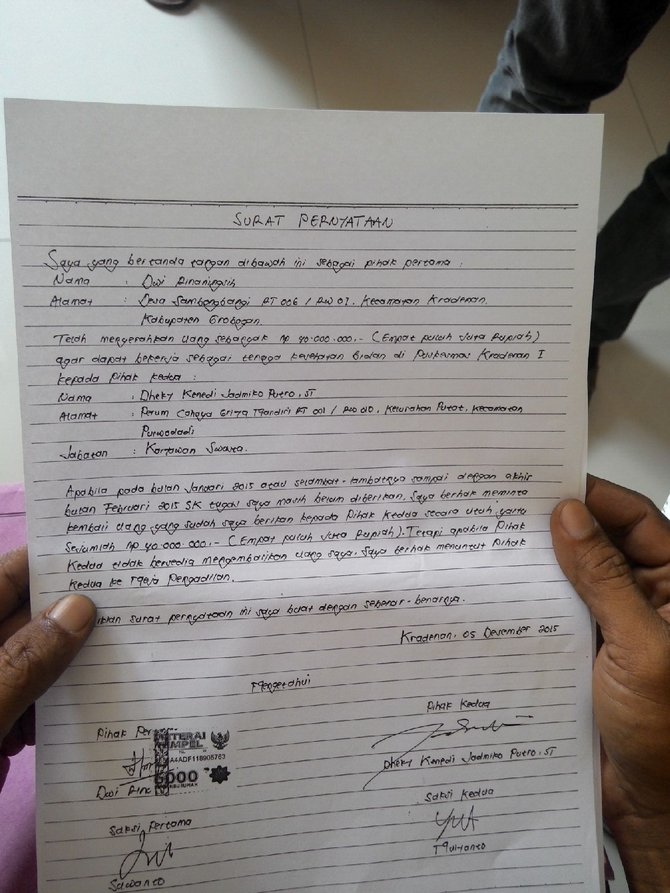 SURAT PERNYATAAN
Saya yang bertanda tangan dibawah ini sebagai pihak pertama :
Nama : Dwi Rinaningsih
Alamat : Desa Sambongbangi RT 006 / RW 01, Kecamatan Kradenan,
Kabupaten Grobogan.
Telah menyerahkan uang sebanyak Rp 40.000.000,- (Empat puluh Juta Rupiah)
agar dapat bekerja sebagai tenaga kesehatan Bidan di Puskesmas Kradenan I
kepada Pihak Kedua :
Nama : Dheky Kenedi Jadmiko Putro, ST
Alamat : Perum Cahaya Griya Mandiri RT 001 / RW 010, Kelurahan Putat, Kecamatan
Purwodadi
Jabatan : Karyawan Swasta.
Apabila pada bulan Januari 2015 atau selambat-lambatnya sampai dengan akhir
bulan Februari 2015 SK tugas saya masih belum diberikan, Saya berhak meminta
kembali uang yang sudah saya berikan kepada Pihak Kedua secara utuh, yaitu
Sejumlah Rp 40.000.000,- (Empat puluh Juta Rupiah). Tetapi apabila Pihak
Kedua tidak bersedia mengembalikan uang saya, Saya berhak menuntut Pihak
Kedua ke Meja Pengadilan.
surat pernyataan ini saya buat dengan sebenar-benarnya.
Kradenan, 05 Desember 2015
Mengetahui
Pihak Per
Pihak Kedua
TERAI
MPEL
A4ADF118905763
6000
Dwi Rina
Dheky Kenedi Jadmiko Putro, ST
Saksi Pertama
Saksi Kedua
Sawanto
Mulyanto